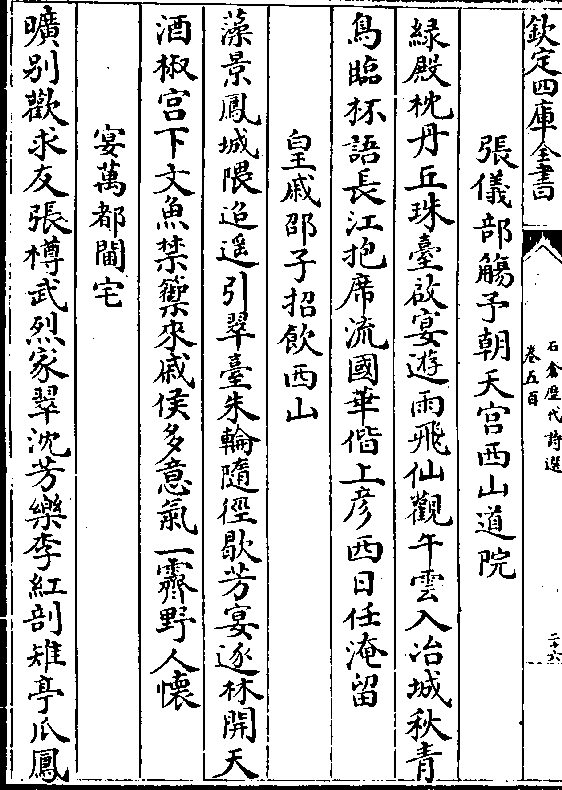 欽定四庫全書
石倉歴代詩選
卷五百
二十六
張儀部觴予朝天宫西山道院
緑殿枕丹丘珠臺啟宴遊雨飛仙觀午雲入冶城秋青
鳥臨杯語長江抱席流國華偕上彦西日任淹留
皇戚邵子招飲西山
藻景鳳城隈迢遥引翠臺朱輪隨徑歇芳宴逐林開天
酒椒宫下文魚禁籞來戚侯多意氣一霽野人懐
宴萬都閫宅
曠别歡求友張樽武烈家翠沈芳樂李紅剖雉亭瓜鳳